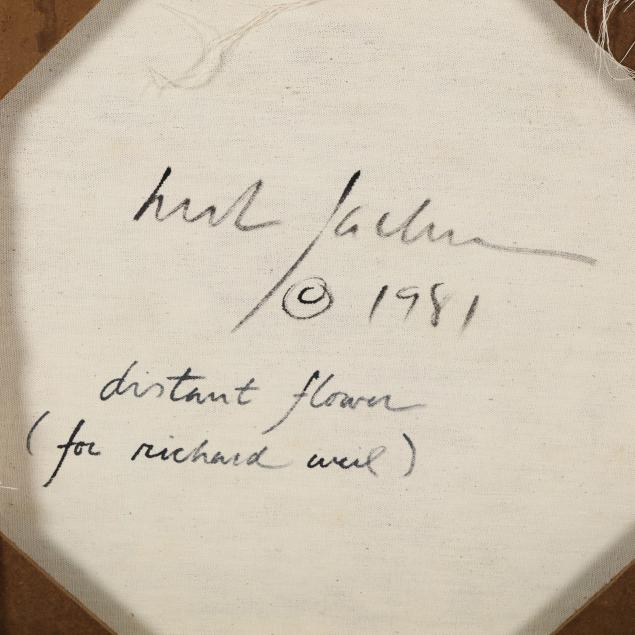 herb Jackson
© 1981
distant flower
(for richard weil)